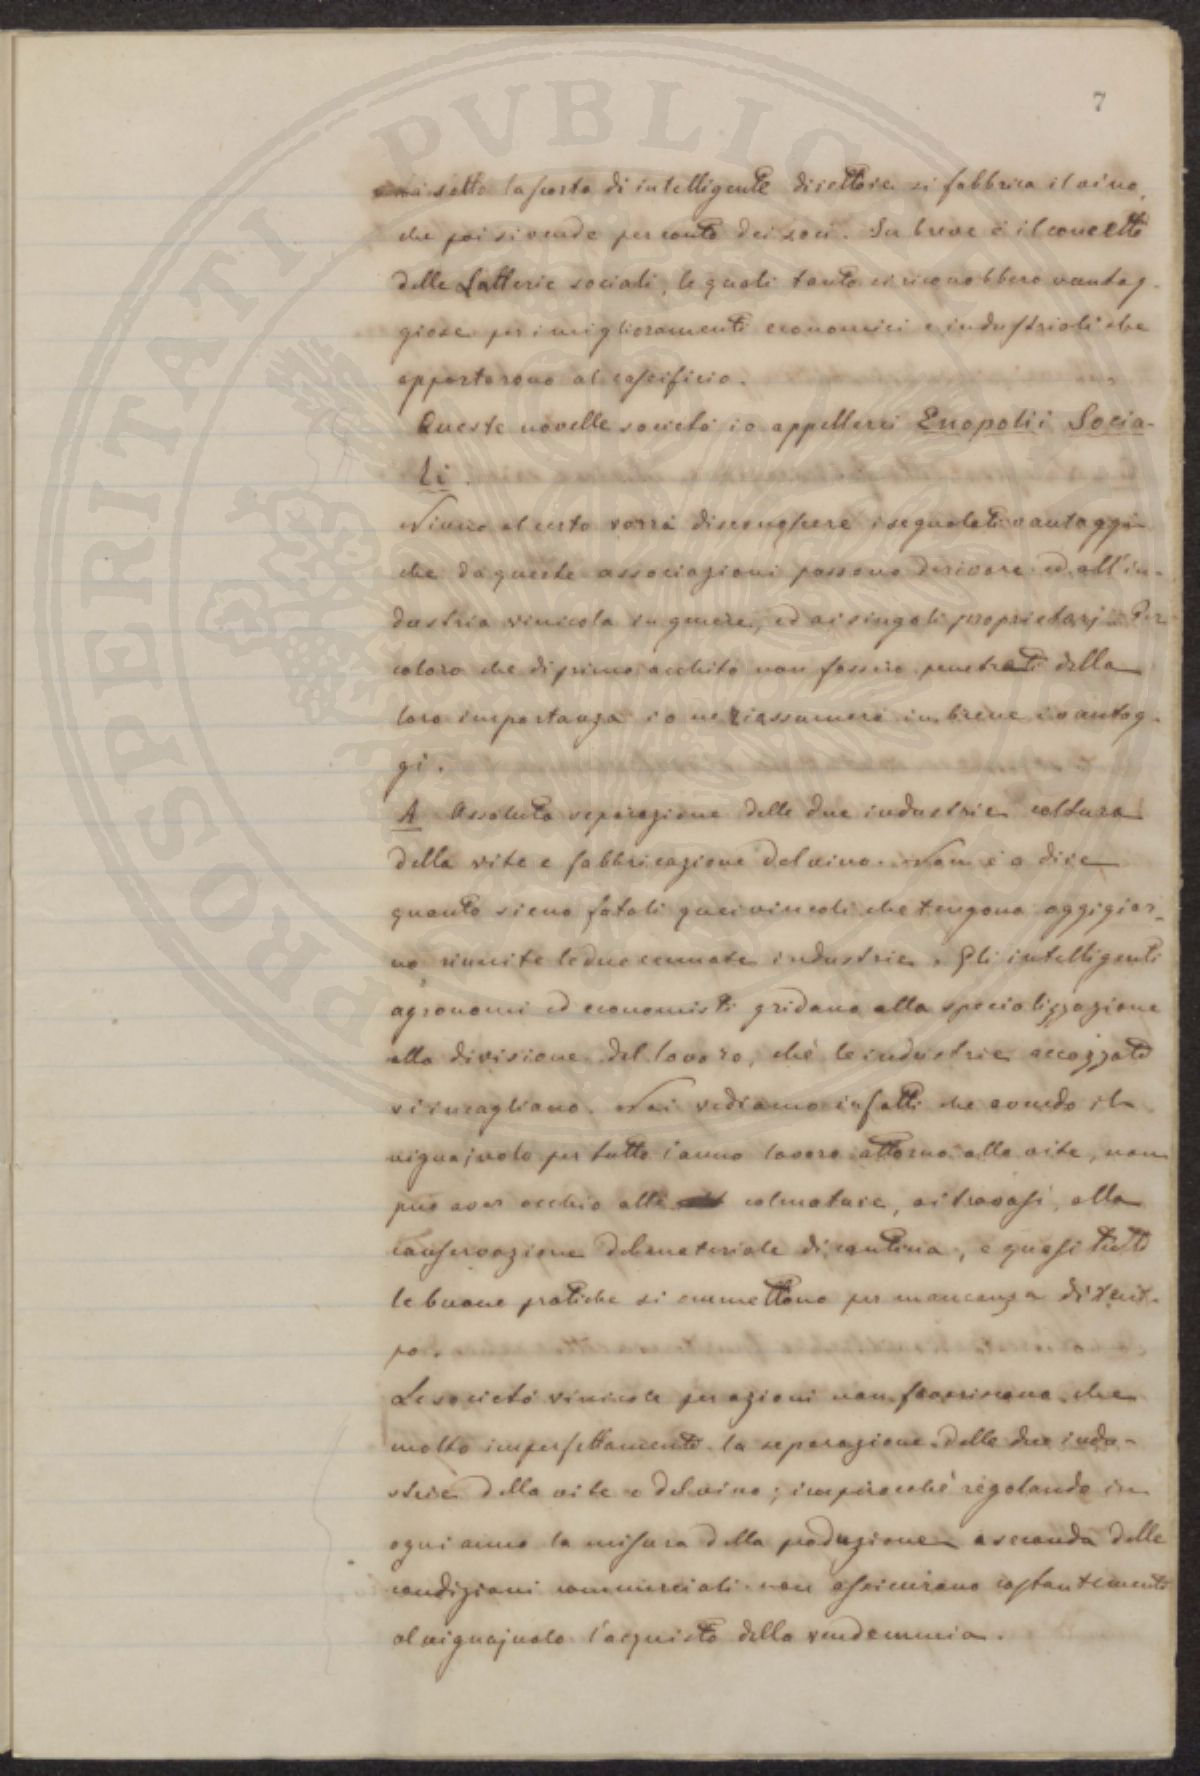 7
sotto la scorta di intelligente direttore si fabbrica il vino,
che poi si vende per conto dei soci. In breve è il concetto
delle Latterie sociali, le quali tanto si riconobbero vantag-
giose per i miglioramenti economici e industriali che
apportarono al caseificio.
Queste novelle società io appellerei Enopolii Socia-
li.
Niuno al certo vorrà disconoscere i segnalati vantaggi
che da queste associazioni possono derivare ed all'in-
dustria vinicola in genere, ed ai singoli proprietarj. Per
coloro che di primo acchito non fossero penetrati della
loro importanza io ne riassumerò in breve i vantag-
gi.
A Assoluta separazione delle due industrie coltura
della vite e fabbricazione del vino. Non è a dire
quanto sieno fatali quei vincoli che tengono oggigior-
no riunite le due cennate industrie. Gli intelligenti
agronomi ed economisti gridano alla specializzazione
alla divisione del lavoro, chè le industrie accozzate
s'incagliano. Noi vediamo infatti che avendo il
vignajuolo per tutto l'anno lavoro attorno alla vite, non
può aver occhio alle colmature, ai travasi, alla
conservazione del materiale di cantina, e quasi tutte
le buone pratiche si ommettono per mancanza di tem-
po.
Le società vinicole per azioni non forniscono che
molto imperfettamente la separazione delle due indu-
strie della vite e del vino; imperocchè regolando in
ogni anno la misura della produzione a seconda delle
condizioni commerciali non assicurano costantemente
al vignajuolo l'acquisto della vendemmia.
PROSPERITATI PVBLICAE